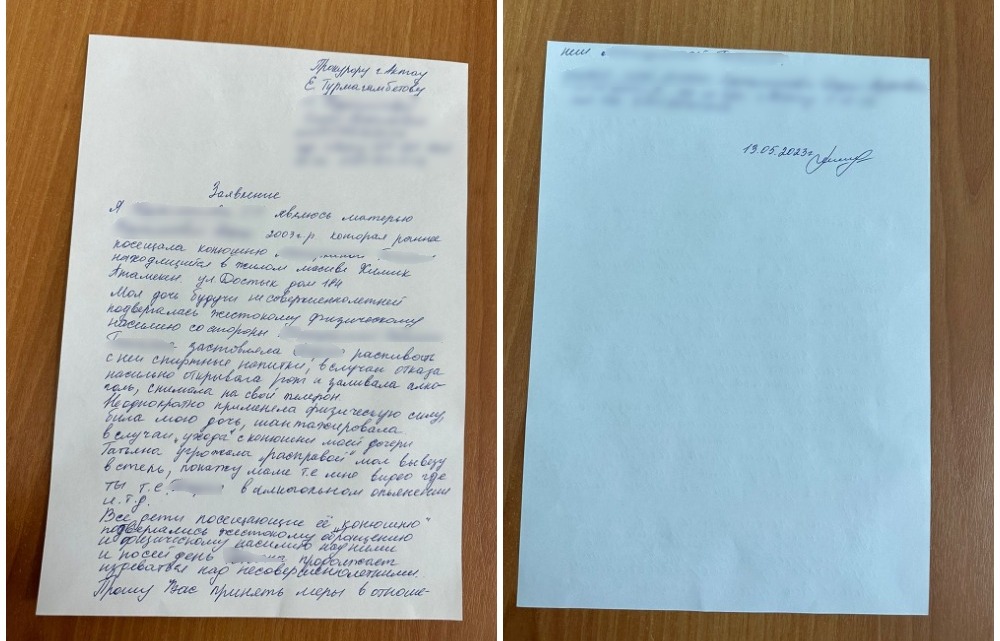 Прокурору г. Актау
Е. Турмагамбетову
Заявление
Я являюсь матерью
2003г.р. которая раннее
посещала конюшню
находящийся в жилом массиве Химик
Атамекен ул. Достык дом 184
Моя дочь будучи несовершеннолетней
подвергалась жестокому физическому
насилию со стороны
заставляла распивать
с ней спиртные напитки, в случаи отказа
насильно открывала рот и заливала алко-
голь, снимала на свой телефон.
Неоднократно применяла физическую силу,
била мою дочь, шантажировала
в случаи „ухода" с конюшни моей дочери
Татьяна угрожала „расправой" мол вывезу
в степь, покажу маме т.е мне видео где
ты т.е. в алкогольном опьянении
и.т.д.
Все дети посещающие её „конюшню"
подвергались жестокому обращению
и физическому насилию над ними
и посей день продолжает
издеватся над несовершеннолетними.
Прошу Вас принять меры в отноше-
нии
19.05.2023г.